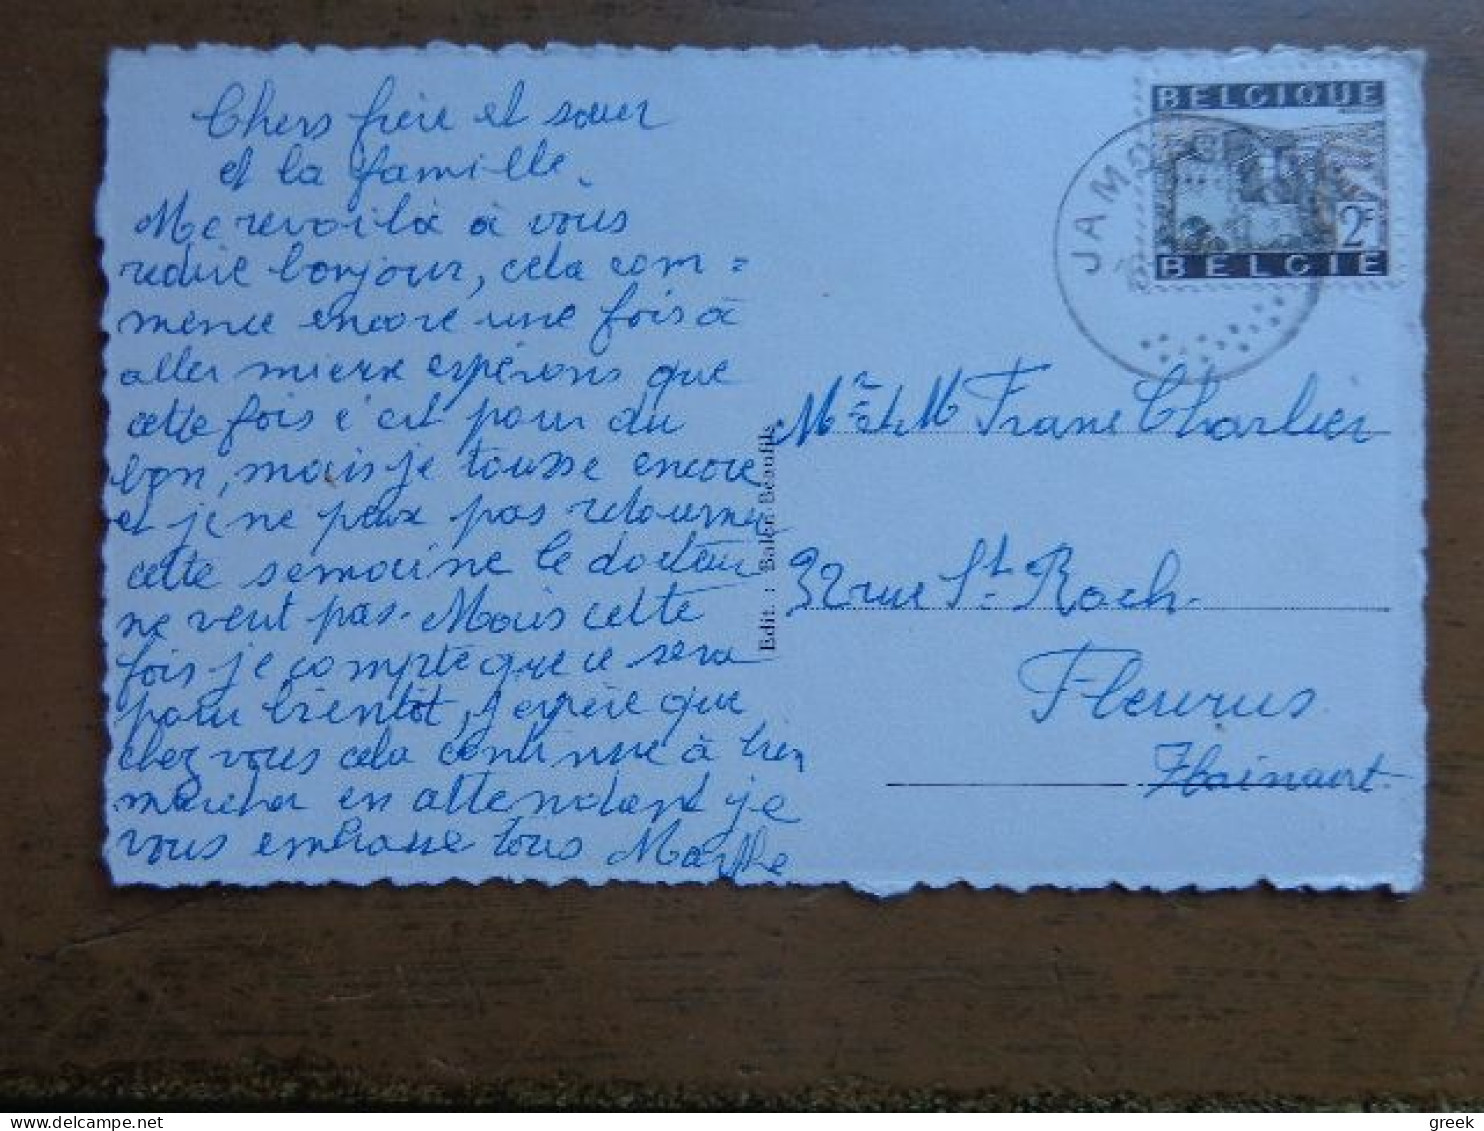 Chers frère et sœur
et la famille.
Me revoilà à vous
redire bonjour, cela com=
mence encore une fois à
aller mieux espérons que
cette fois c'est pour du
bon, mais je tousse encore
et je ne peux pas retourner
cette semaine le docteur
ne veut pas. Mais cette
fois je compte que ce sera
pour bientôt, j'espère que
chez vous cela continue à bien
marcher en attendant je
vous embrasse tous Marthe
Edit. : Balér. Beaufils
BELGIQUE
2F
BELGIE
JAMO
Mr et M Franc Charlier
32 rue St. Roch.
Fleurus
Hainaut.
greek